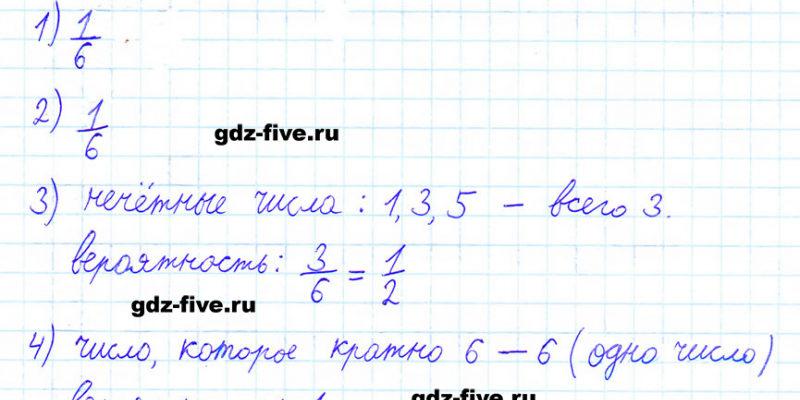 1) 1/6
2) 1/6
gdz-five.ru
3) нечётные числа : 1, 3, 5 — всего 3.
вероятность: 3/6 = 1/2
gdz-five.ru
4) число, которое кратно 6 — 6 (одно число)
gdz-five.ru